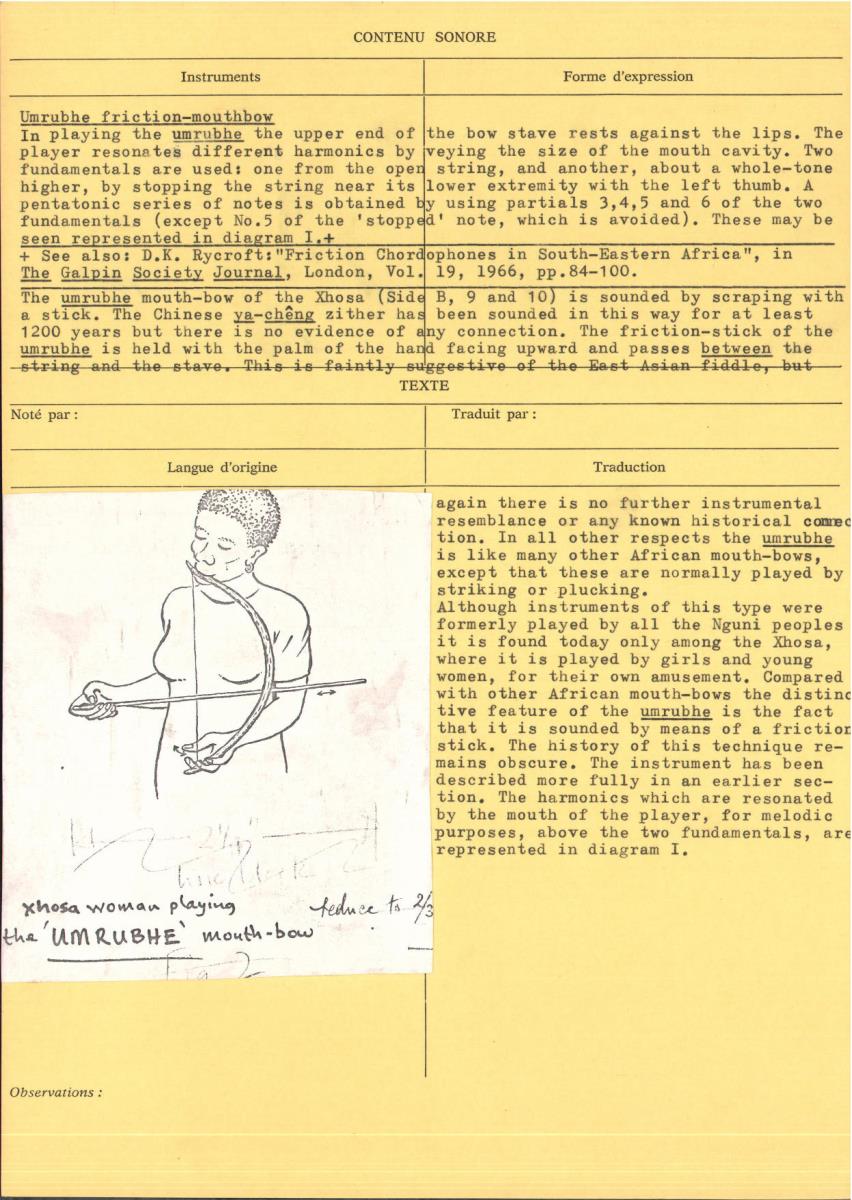 CONTENU SONORE
Instruments
Forme d'expression
Umrubhe friction-mouthbow
In playing the umrubhe the upper end of the bow stave rests against the lips. The
player resonates different harmonics by veying the size of the mouth cavity. Two
fundamentals are used: one from the open string, and another, about a whole-tone
higher, by stopping the string near its lower extremity with the left thumb. A
pentatonic series of notes is obtained by using partials 3,4,5 and 6 of the two
fundamentals (except No.5 of the 'stopped' note, which is avoided). These may be
seen represented in diagram I.+
+ See also: D.K. Rycroft:"Friction Chordophones in South-Eastern Africa", in
The Galpin Society Journal, London, Vol. 19, 1966, pp.84-100.
The umrubhe mouth-bow of the Xhosa (Side B, 9 and 10) is sounded by scraping with
a stick. The Chinese ya-chêng zither has been sounded in this way for at least
1200 years but there is no evidence of any connection. The friction-stick of the
umrubhe is held with the palm of the hand facing upward and passes between the
string and the stave. This is faintly suggestive of the East Asian fiddle, but
TEXTE
Noté par :
Traduit par :
Langue d'origine
Traduction
again there is no further instrumental
resemblance or any known historical connec
tion. In all other respects the umrubhe
is like many other African mouth-bows,
except that these are normally played by
striking or plucking.
Although instruments of this type were
formerly played by all the Nguni peoples
it is found today only among the Xhosa,
where it is played by girls and young
women, for their own amusement. Compared
with other African mouth-bows the distinc
tive feature of the umrubhe is the fact
that it is sounded by means of a friction
stick. The history of this technique re-
mains obscure. The instrument has been
described more fully in an earlier sec-
tion. The harmonics which are resonated
by the mouth of the player, for melodic
purposes, above the two fundamentals, are
represented in diagram I.
xhosa woman playing
the 'UMRUBHE' mouth-bow
reduce to 2/3
Observations :